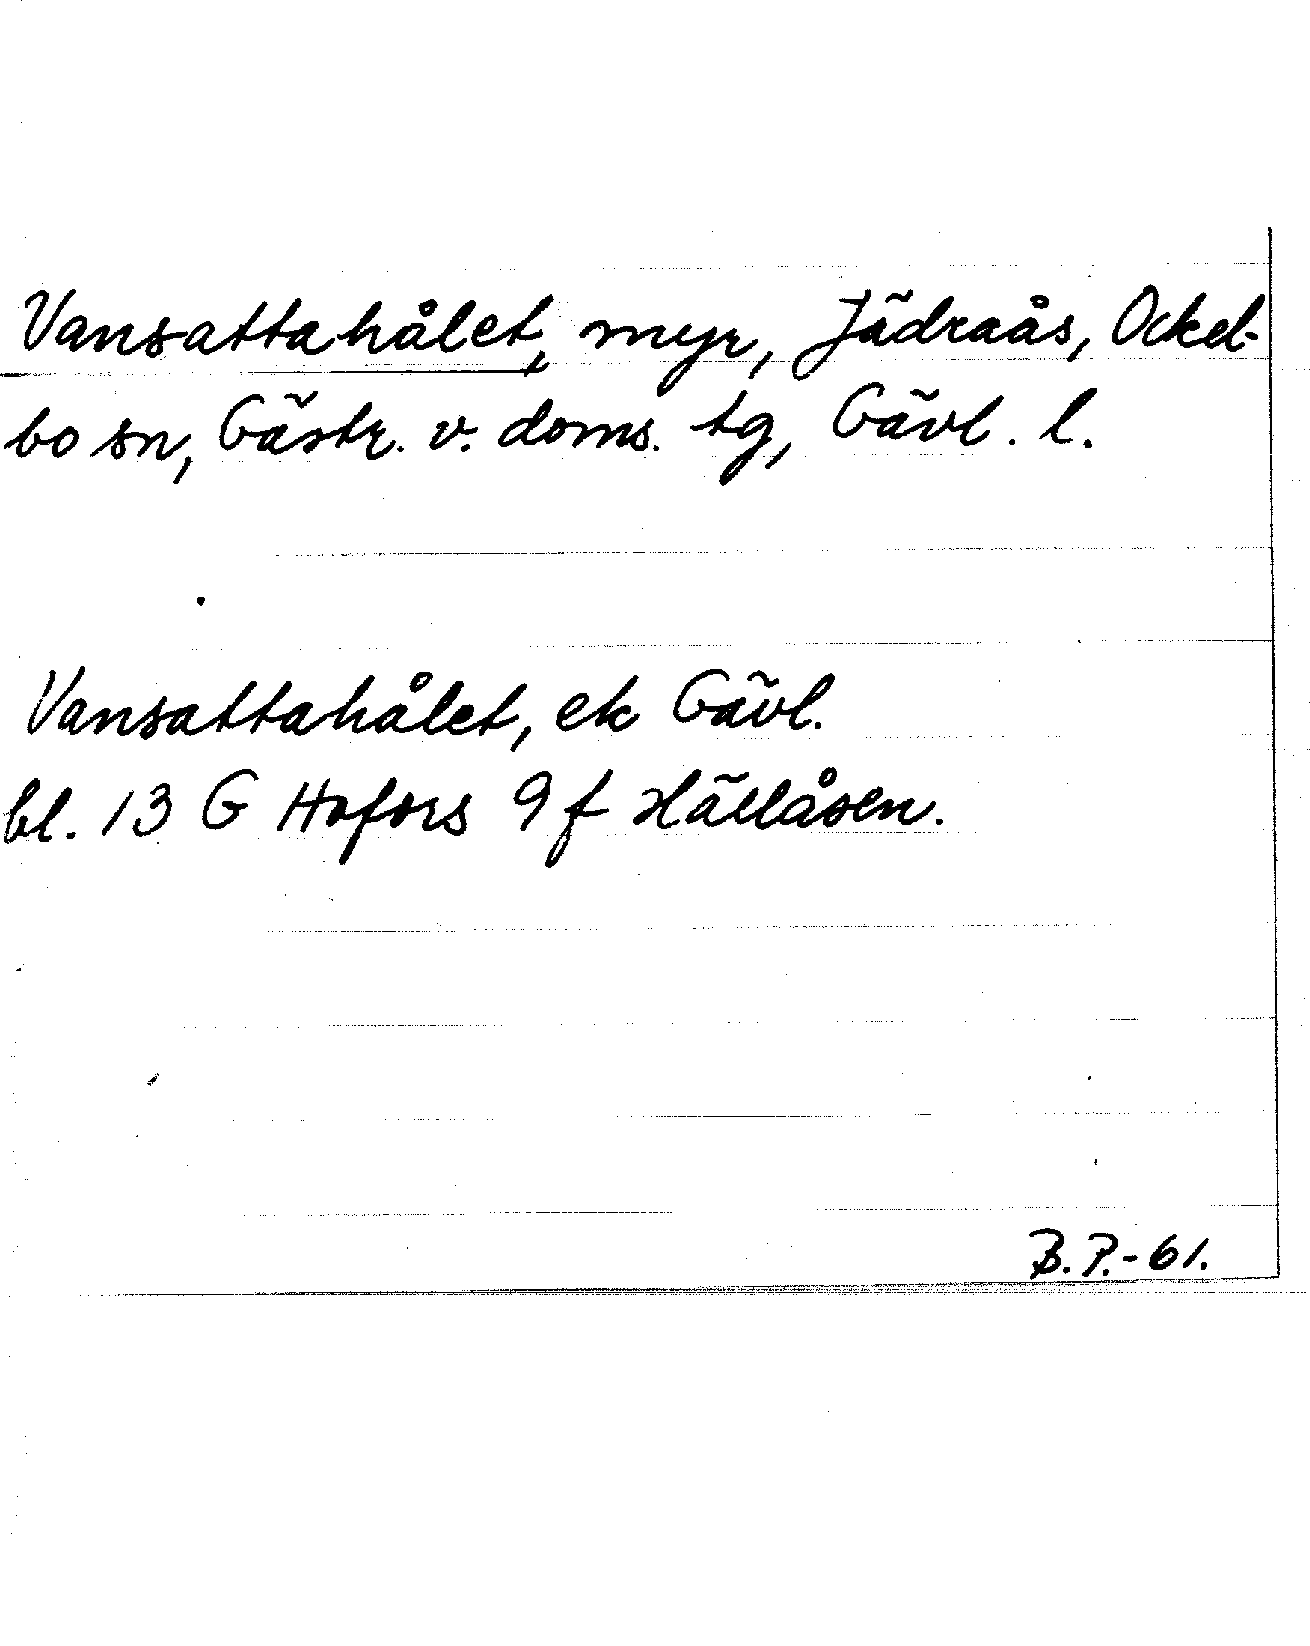 Vansattahålet, myr, Jädraås, Ockel-
bo sn, Gästr. v. doms. tg, Gävl. l.
Vansattahålet, ek Gävl.
bl. 13 G Hofors 9 f Hällåsen.
B.P.-61.